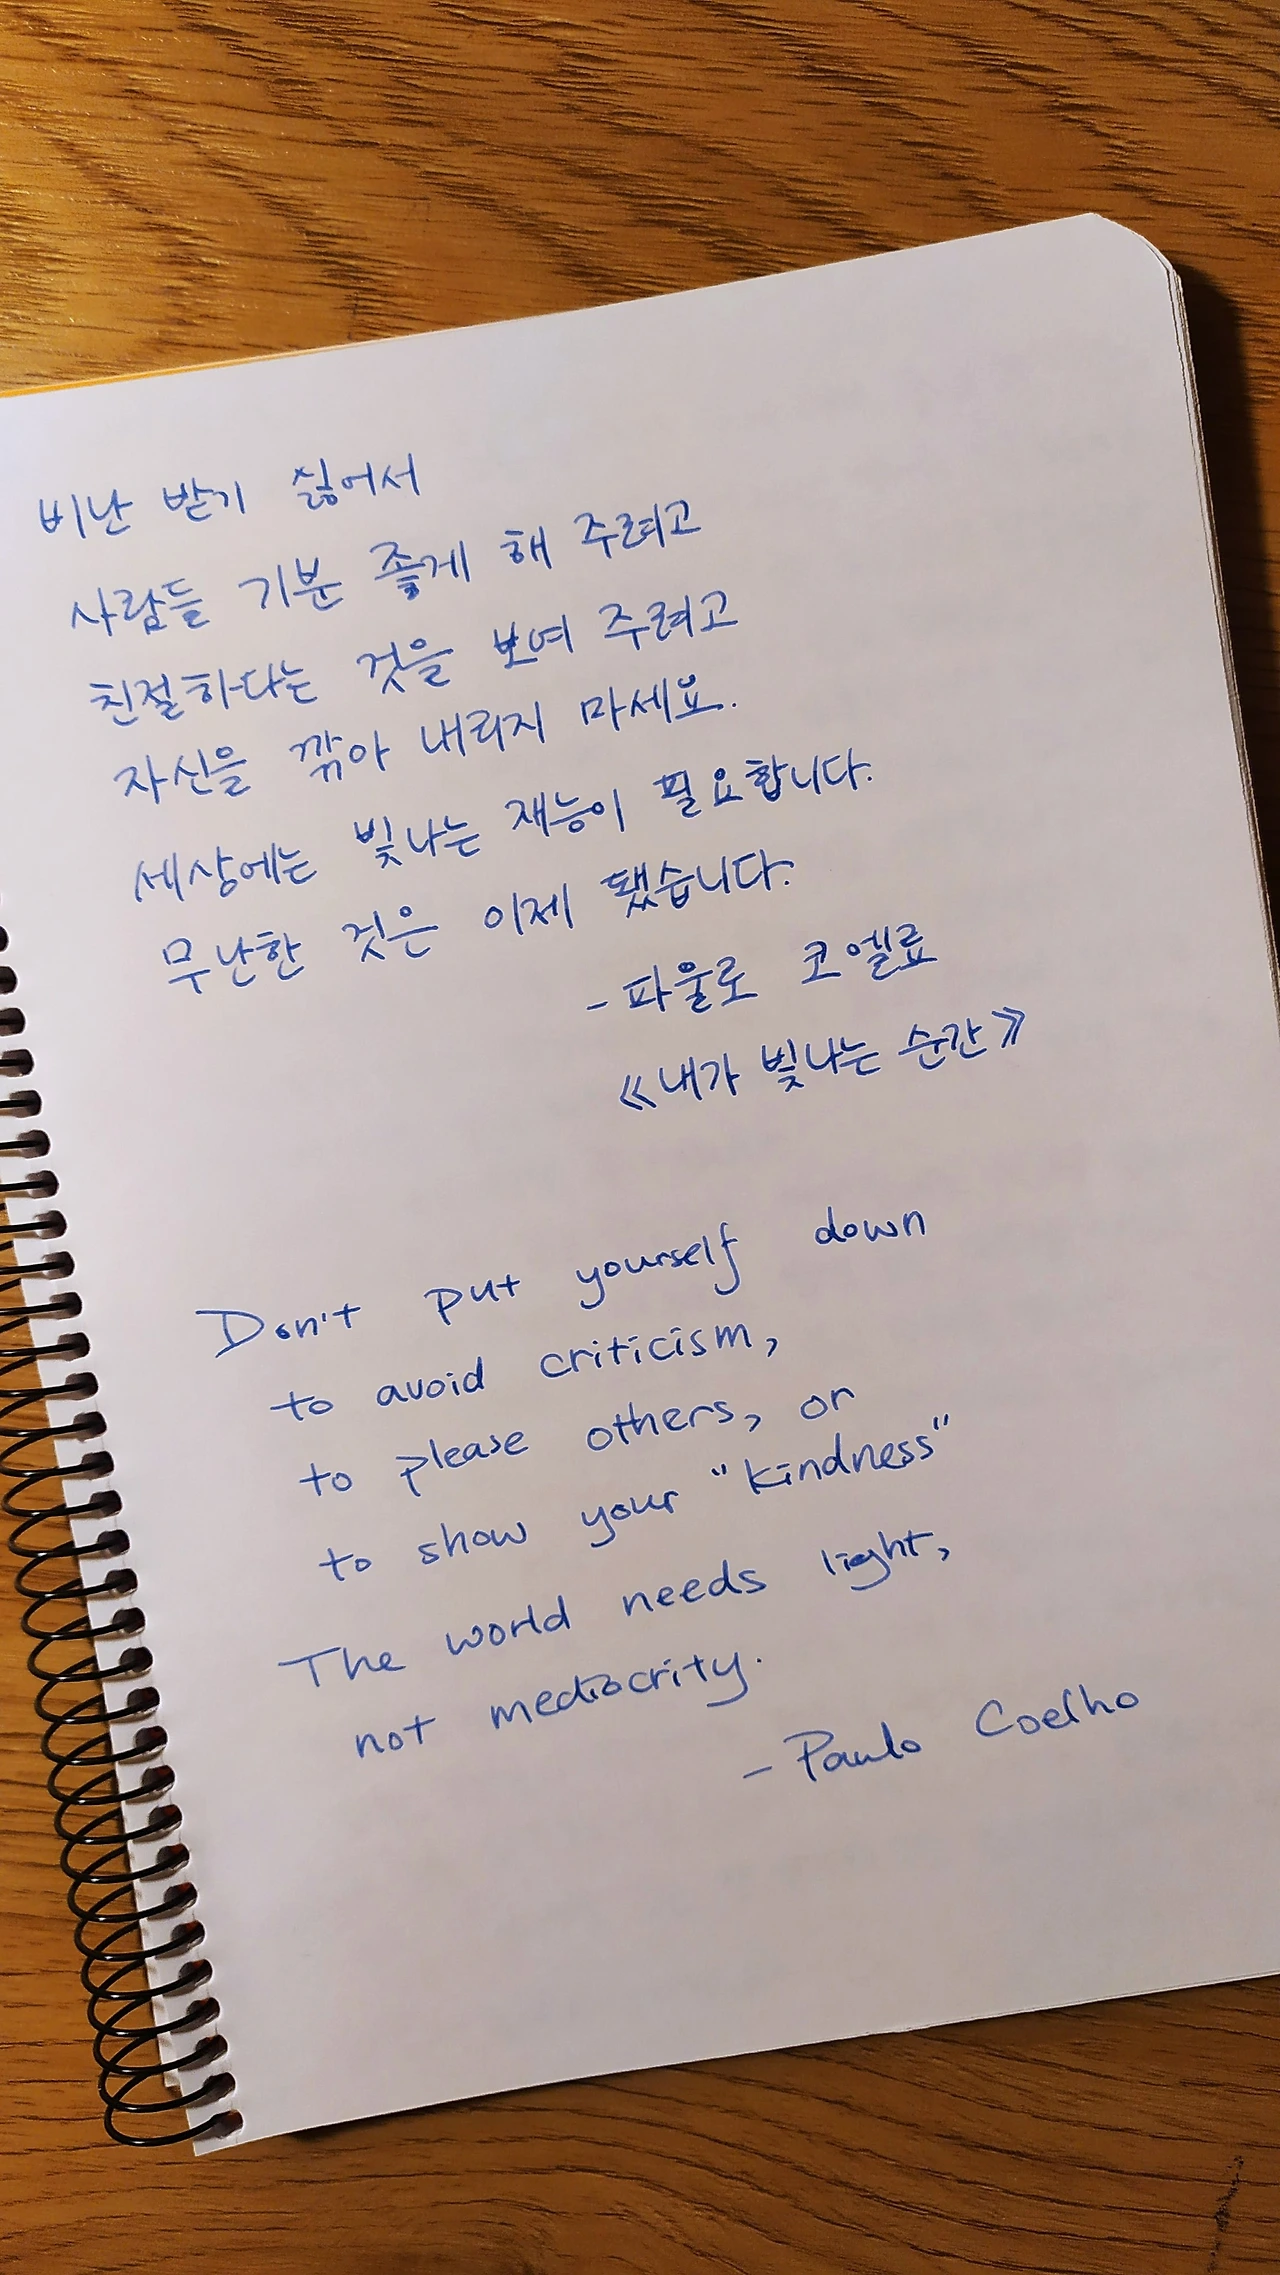 비난 받기 싫어서
사람들 기분 좋게 해 주려고
친절하다는 것을 보여 주려고
자신을 깎아 내리지 마세요.
세상에는 빛나는 재능이 필요합니다.
무난한 것은 이제 됐습니다.
- 파울로 코엘료
《내가 빛나는 순간》
Don't put yourself down
to avoid criticism,
to please others, or
to show your "kindness"
The world needs light,
not mediocrity.
- Paulo Coelho